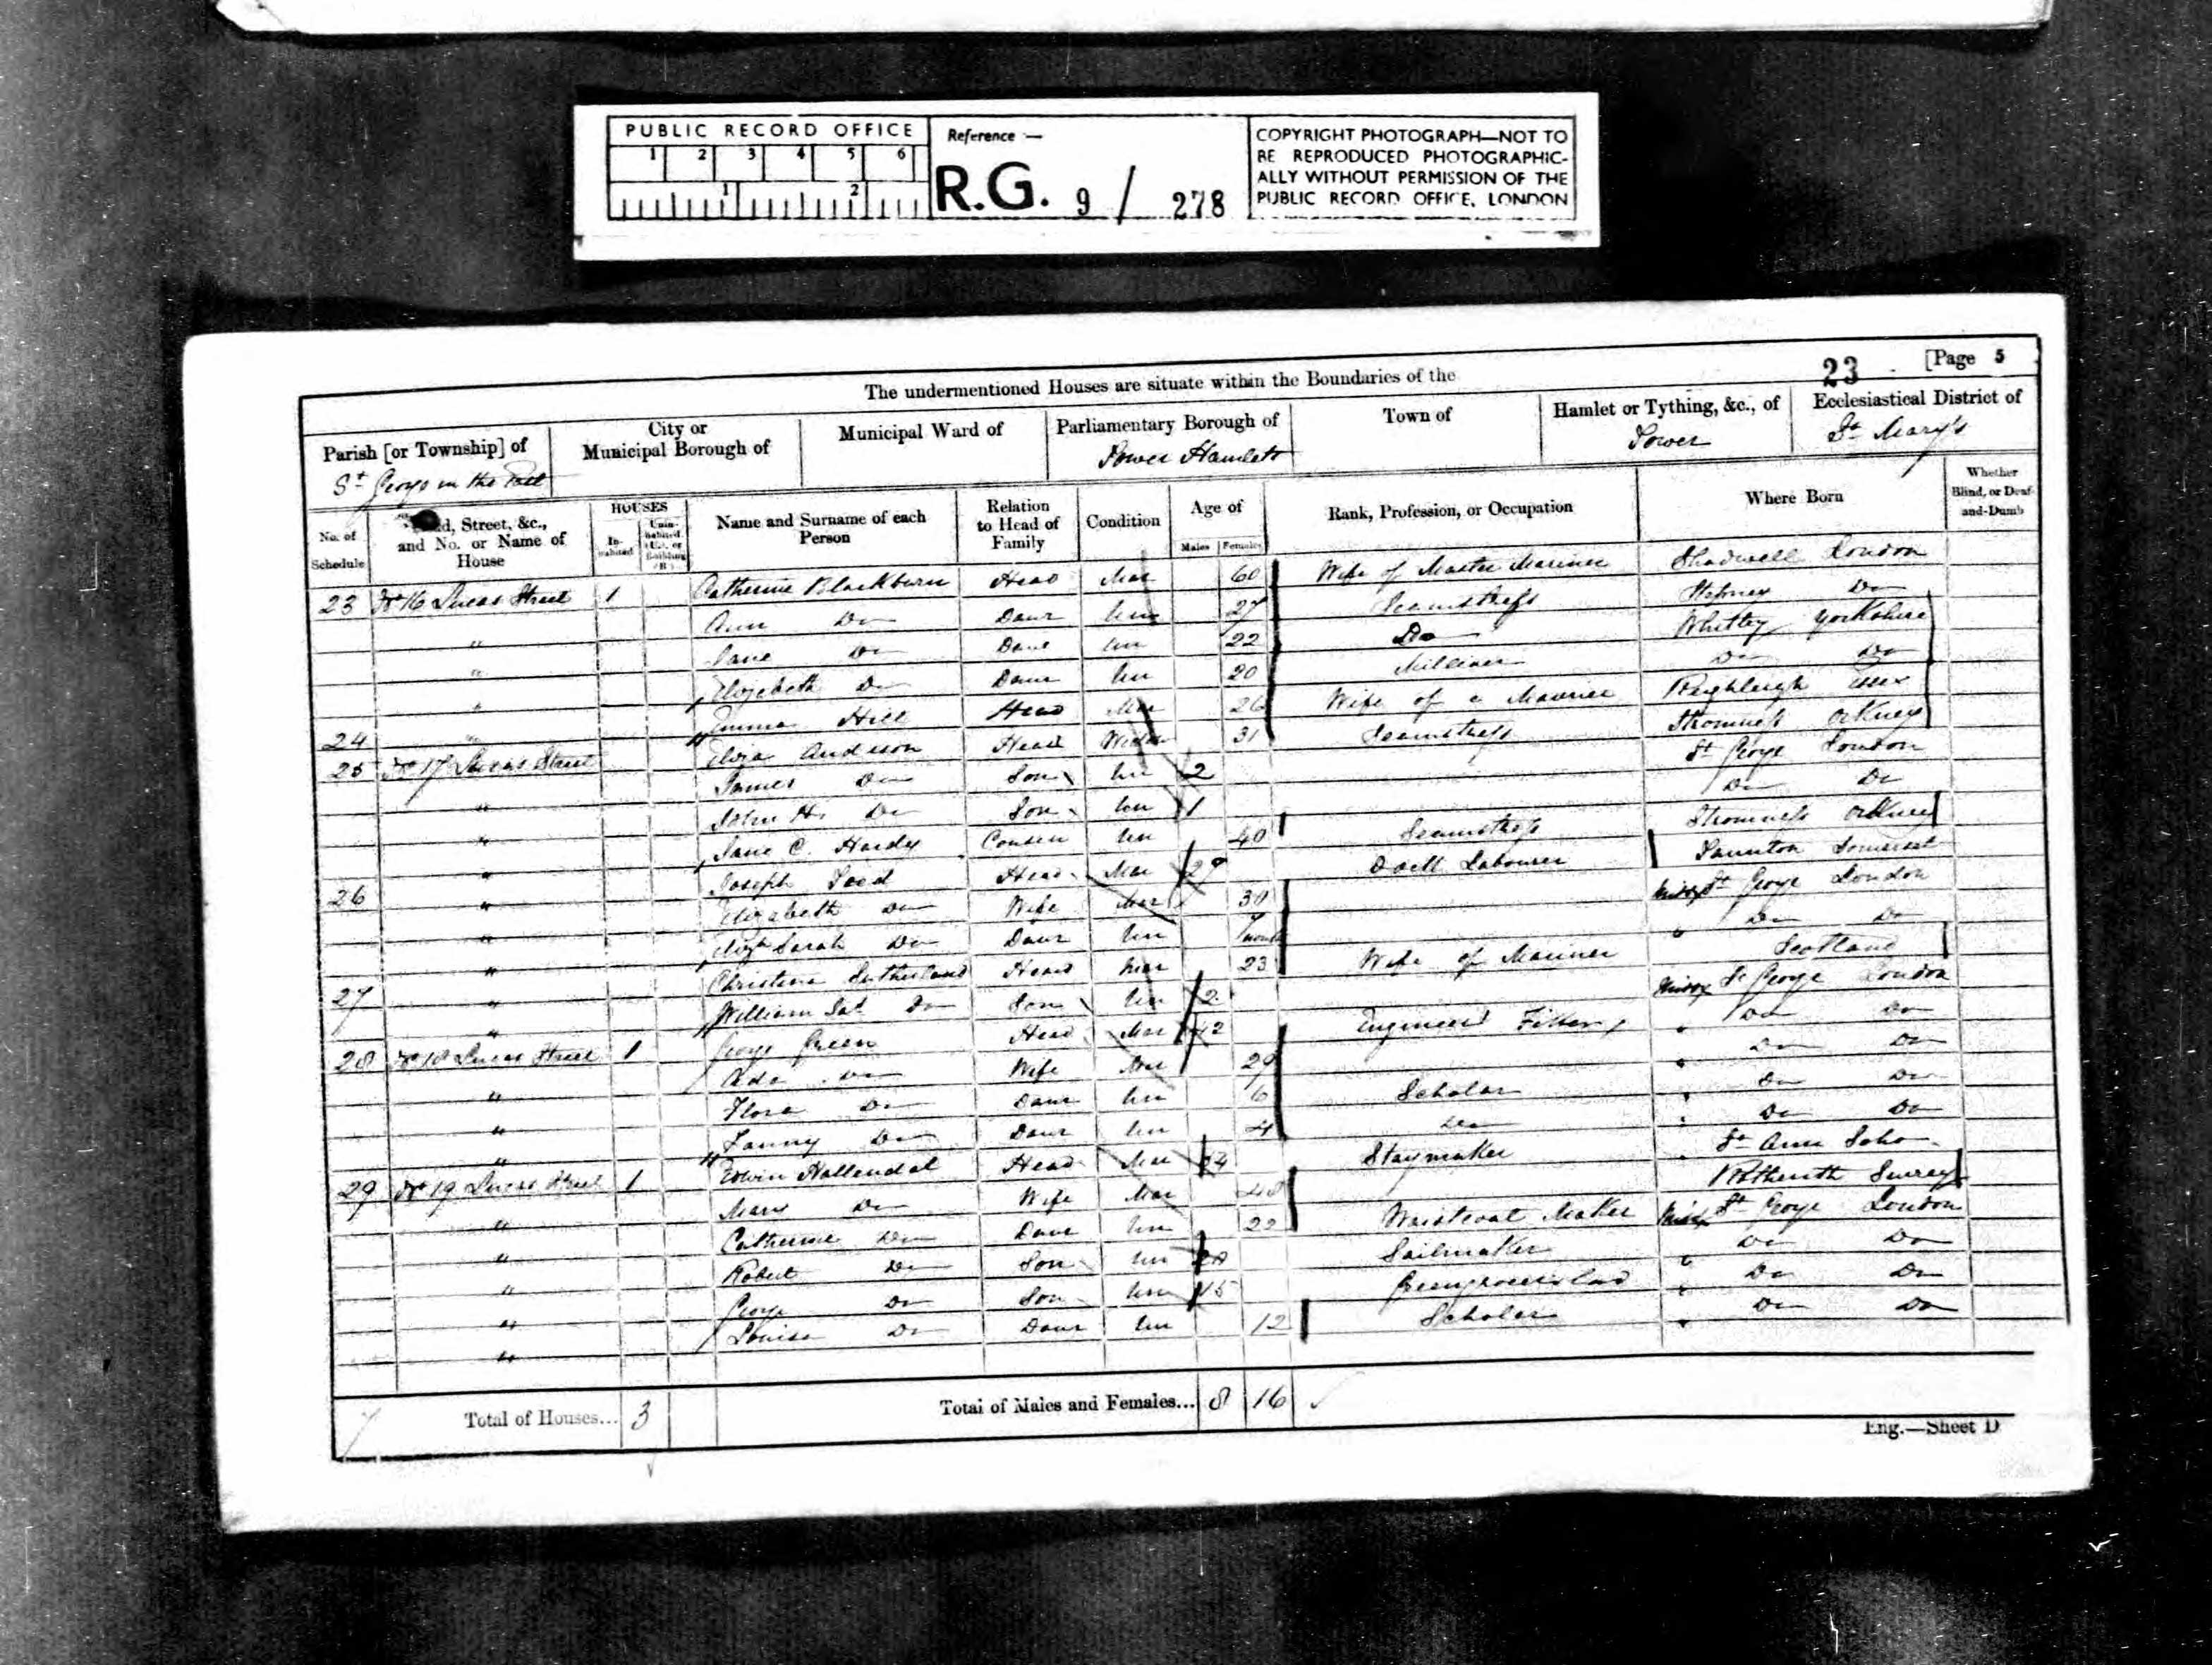 PUBLIC RECORD OFFICE
1 2 3 4 5 6
1 2
Reference :—
R.G. 9 / 278
COPYRIGHT PHOTOGRAPH—NOT TO
BE REPRODUCED PHOTOGRAPHIC-
ALLY WITHOUT PERMISSION OF THE
PUBLIC RECORD OFFICE, LONDON
23 [Page 5
The undermentioned Houses are situate within the Boundaries of the
Parish [or Township] of
St George in the East
City or
Municipal Borough of
Municipal Ward of
Parliamentary Borough of
Tower Hamlets
Town of
Hamlet or Tything, &c., of
Tower
Ecclesiastical District of
St Mary's
No. of
Schedule
Street, &c.,
and No. or Name of
House
HOUSES
In-
habited
Unin-
habited
(U.), or
Building
(B)
Name and Surname of each
Person
Relation
to Head of
Family
Condition
Age of
Males Females
Rank, Profession, or Occupation
Where Born
Whether
Blind, or Deaf-
and-Dumb
23 No 16 Lucas Street 1 Catherine Blackburn Head Mar 60 Wife of Master Mariner Shadwell London
" Ann Do Daur Un 27 Seamstress Stepney Do
" Jane Do Daur Un 22 Do Whitley Yorkshire
" Elizabeth Do Daur Un 20 Milliner Do Do
24 " Emma Hill Head Mar 26 Wife of a Mariner Essex
25 No 17 Lucas Street Eliza Anderson Head Widow 31 Seamstress Stromness Orkney
" James Do Son Un 2 St George London
" John H. Do Son Un 1 Do Do
" Jane C. Hardy Un 40 Seamstress Stromness Orkney
26 " Joseph Head Mar 29 Dock Labourer Taunton Somerset
" Elizabeth Do Wife Mar 30 Middx St George London
" Elizth Sarah Do Daur Un 7 months " Do Do
27 " Christina Sutherland Head Mar 23 Wife of Mariner Scotland
" William Do Son Un 2 Middx St George London
28 No 18 Lucas Street 1 George Green Head Mar 42 Engineer Fitter " Do Do
" Ada Do Wife Mar 29 " Do Do
" Flora Do Daur Un 6 Scholar " Do Do
" Fanny Do Daur Un 4 Do " Do Do
29 No 19 Lucas Street 1 Edwin Hollendal Head Mar Staymaker " St Ann Soho
" Mary Do Wife Mar 48 Surrey
" Catherine Do Daur Un 22 Waistcoat Maker Middx St George London
" Robert Do Son Un Sailmaker " Do Do
" George Do Son Un 15 Greengrocers Lad " Do Do
" Louisa Do Daur Un 12 Scholar " Do Do
Total of Houses... 3 Total of Males and Females... 8 16
Eng.—Sheet D